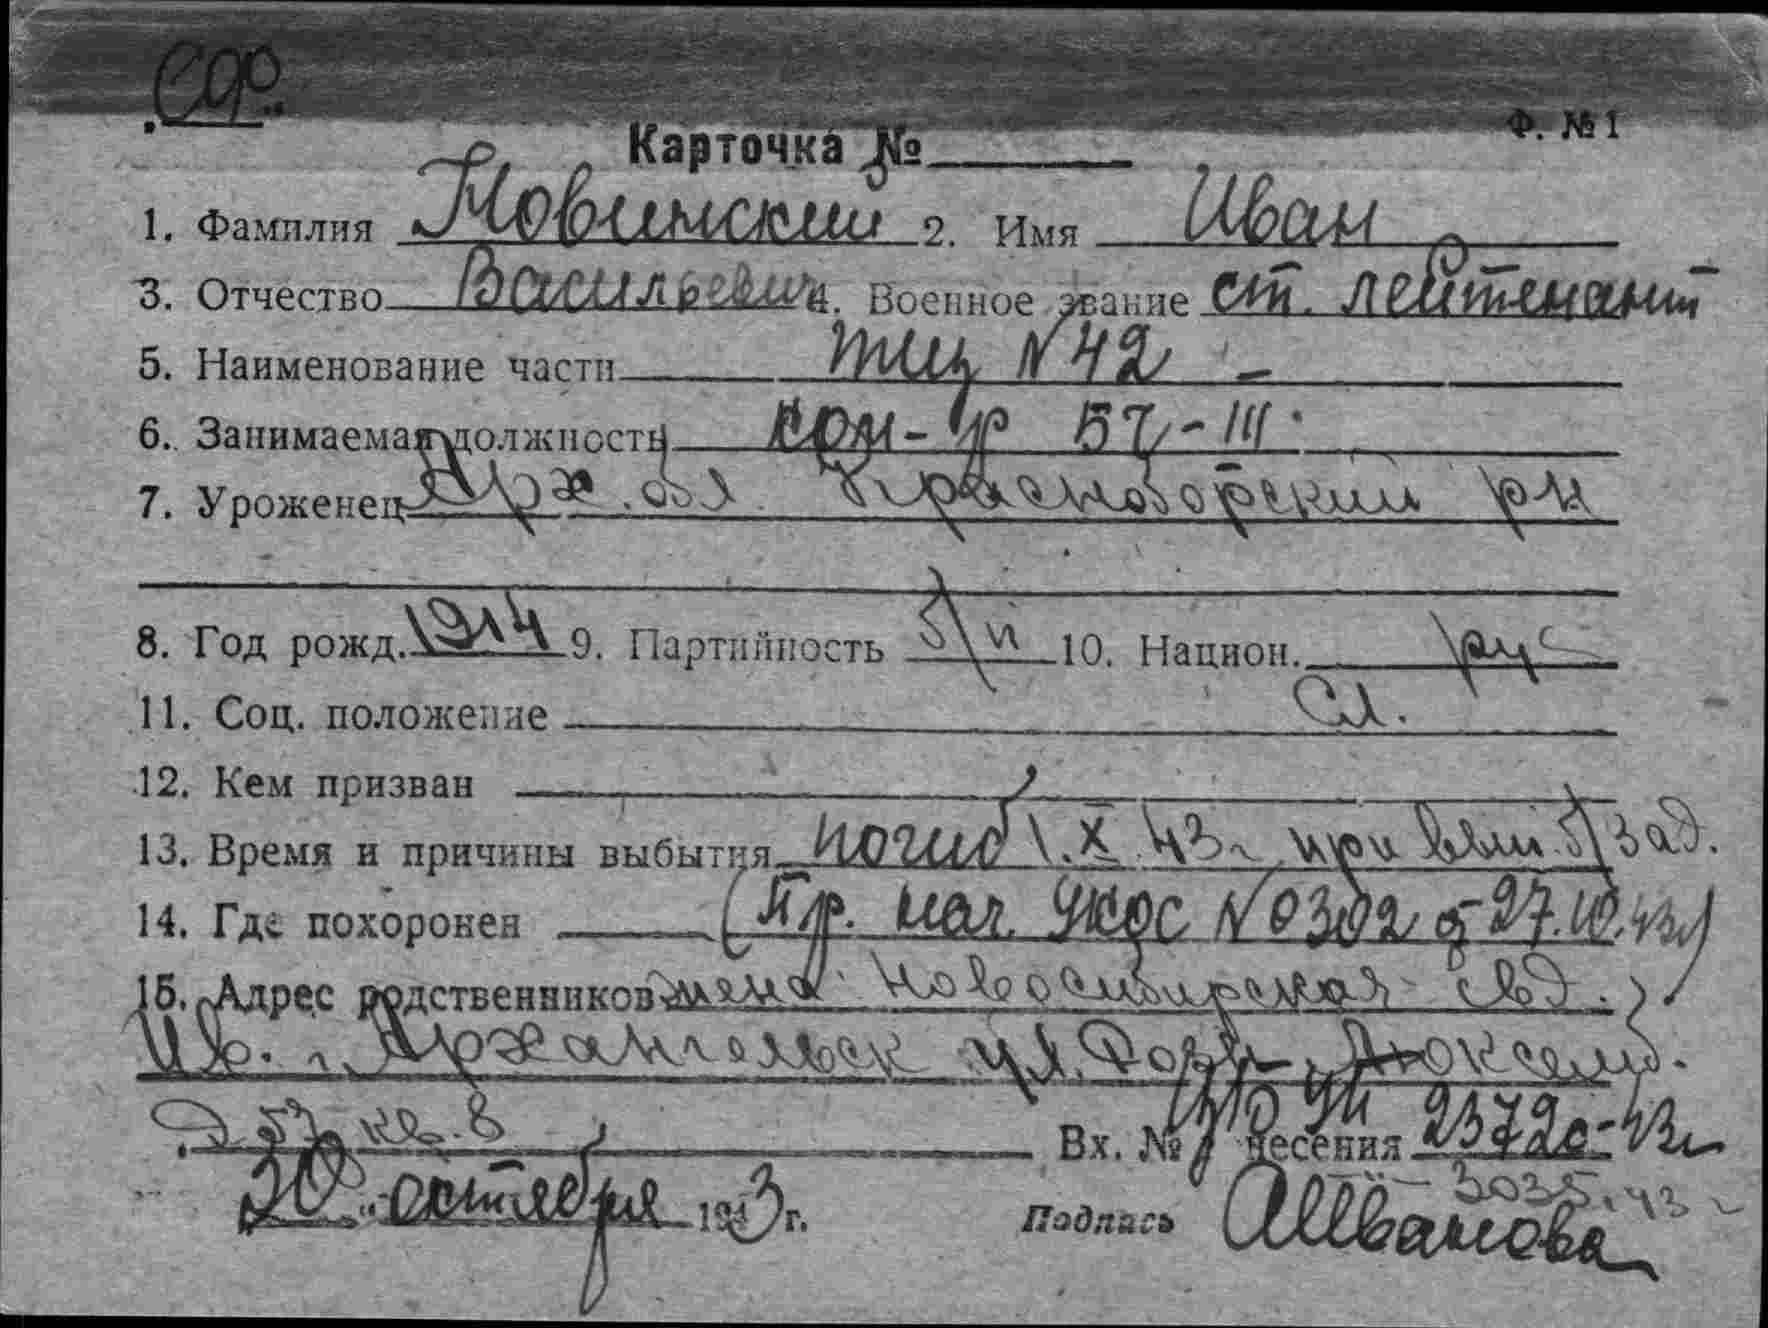 Ф. №1
Карточка №
1. Фамилия Новинский 2. Имя Иван
3. Отчество Васильевич 4. Военное звание ст. лейтенант
5. Наименование части №42 -
6. Занимаемая должность ком-р БЧ-III
7. Уроженец обл. р-н
8. Год рожд. 1914 9. Партийность 10. Национ. рус
11. Социал. положение Сл.
12. Кем призван
13. Время и причины выбытия погиб 1.X.43г. при вып. б/зад.
14. Где похоронен (Пр. нач. №0302 от 27.10.43г)
15. Адрес родственников жена Новосибирская обл.
ул.
Д. 57 кв. 8
Вх. № несения 2372с-43г
3035.43г
20 октября 1943 г. Подпись